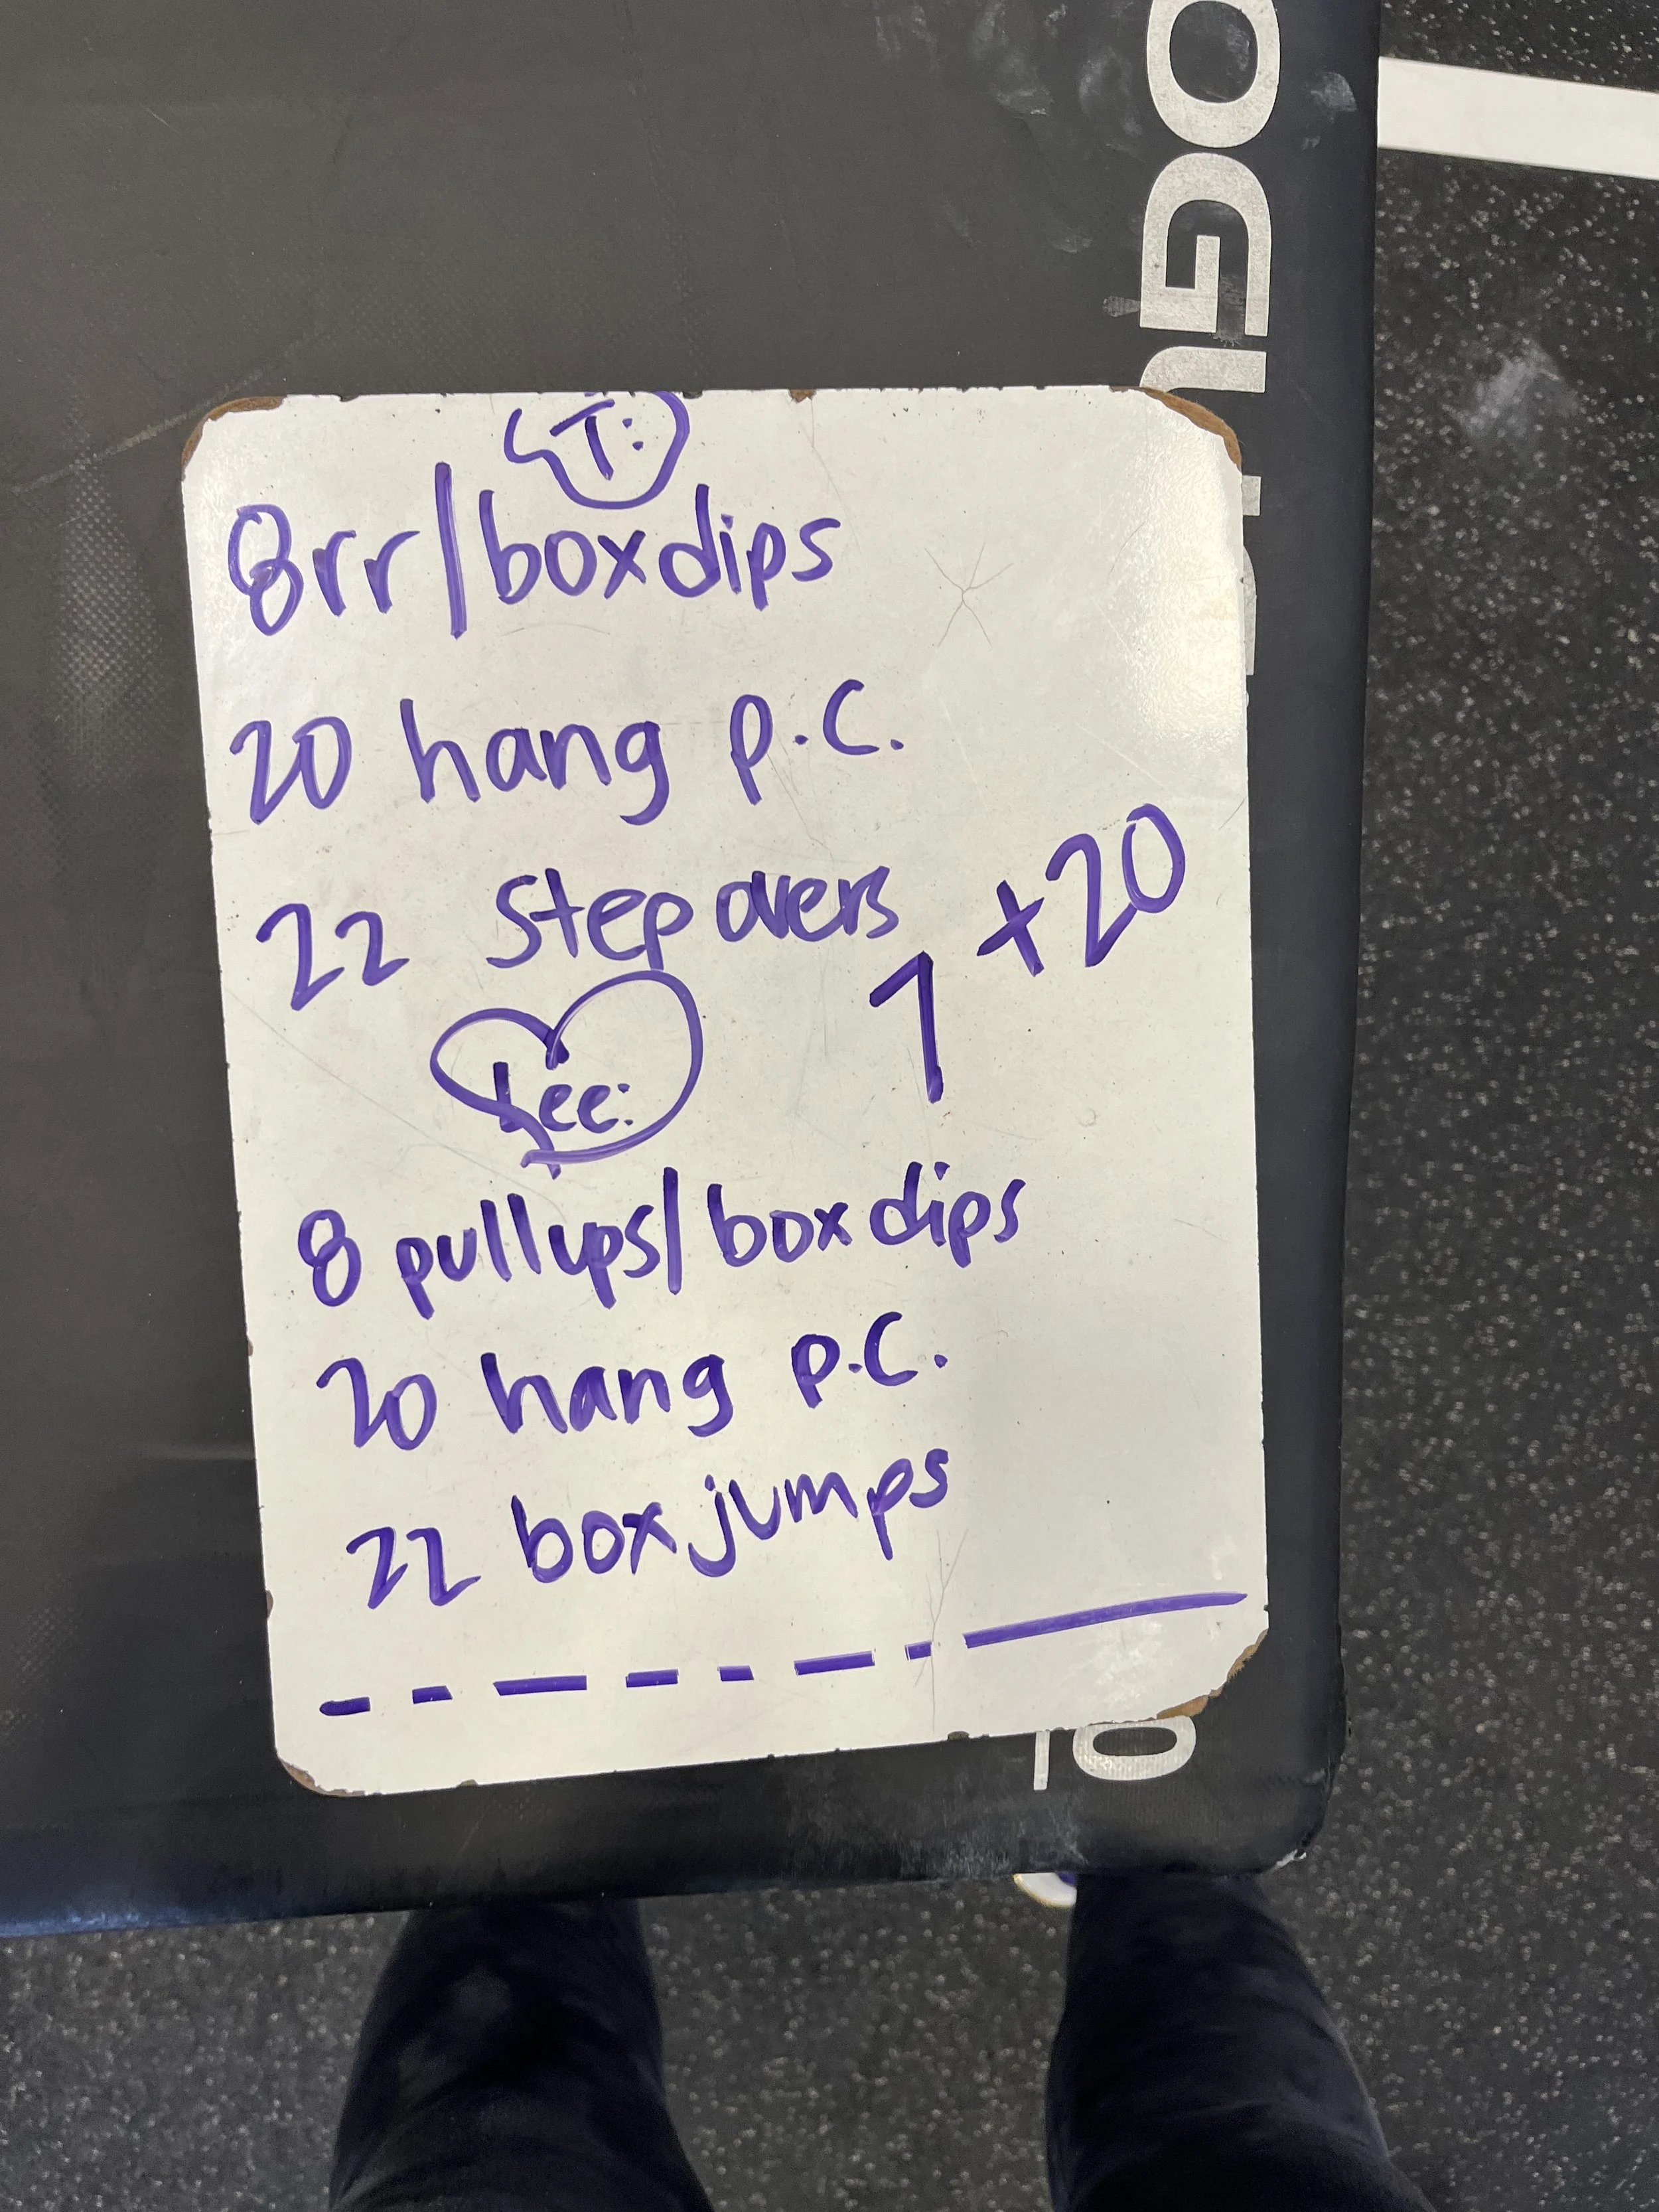 OGU
T:
8rr/box dips
20 hang p.c.
22 step overs
7 +20
Lee:
8 pullups/box dips
20 hang p.c.
22 box jumps